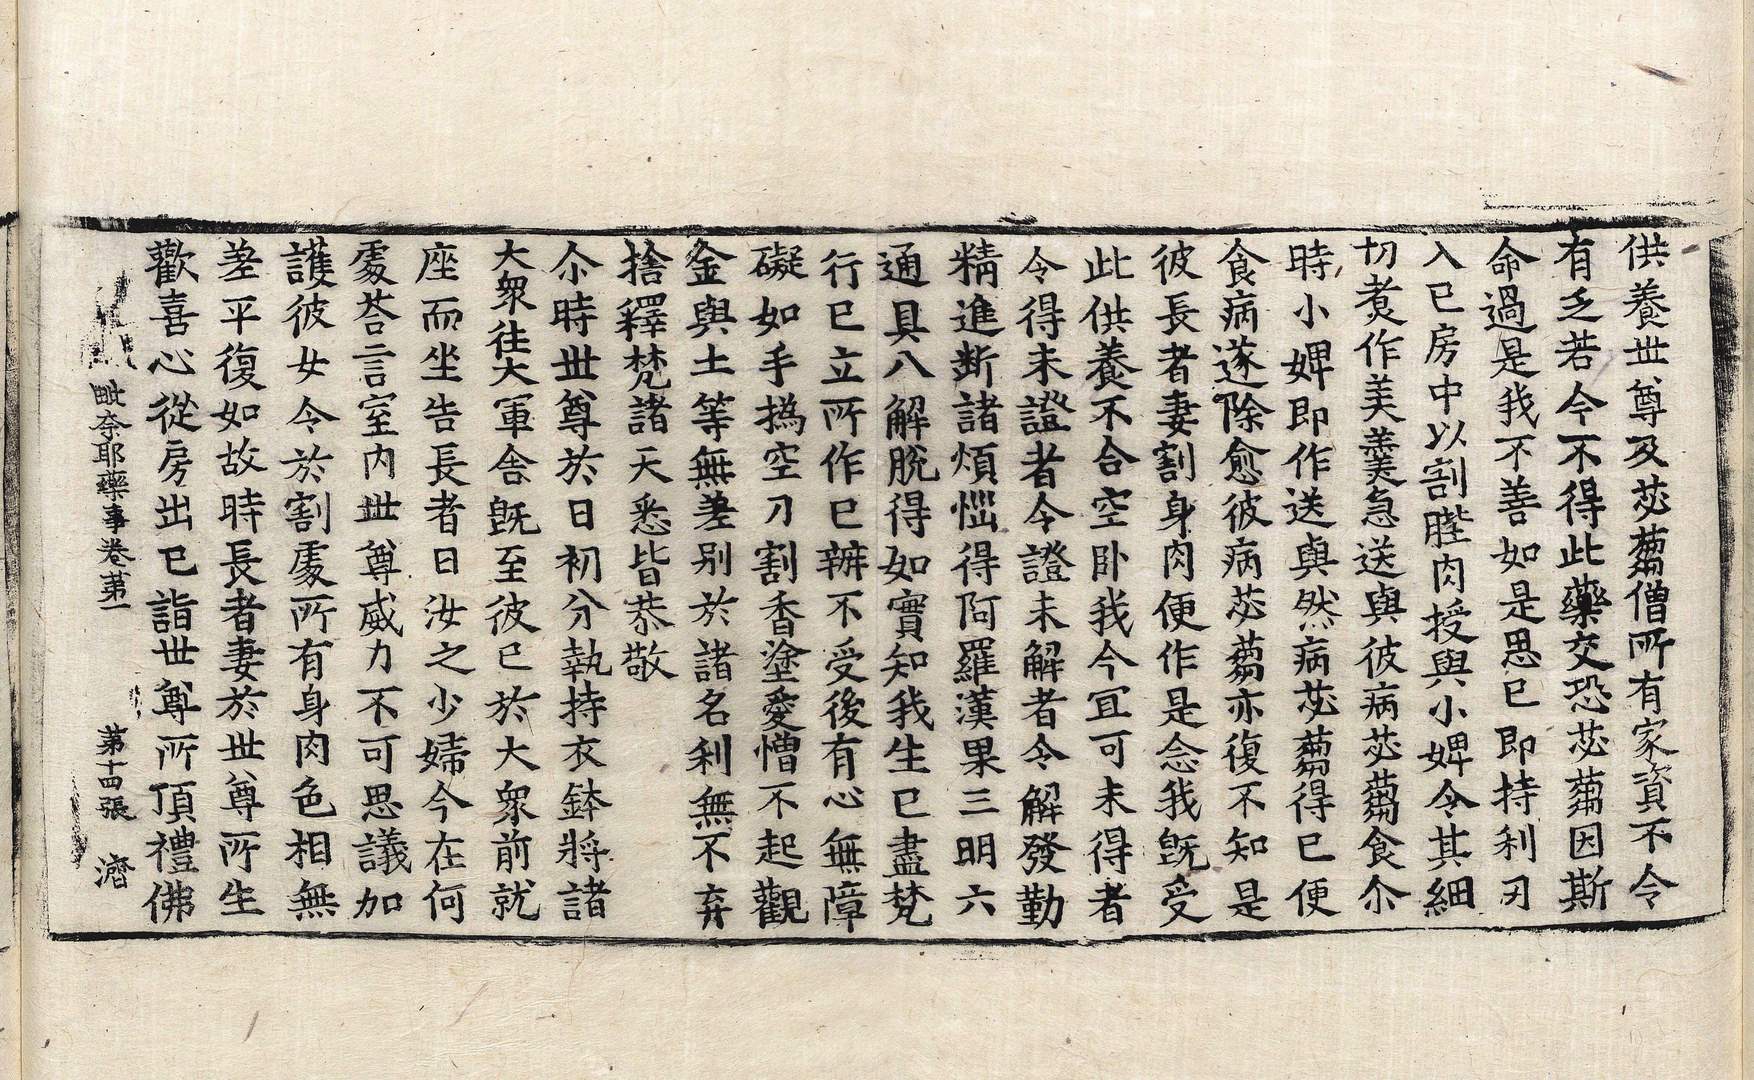 供養世尊及苾蒭僧所有家資不令
有乏若今不得此藥交恐苾蒭因斯
命過是我不善如是思已即持利刃
入己房中以割髀肉授與小婢令其細
切煮作美羹急送與彼病苾蒭食尒
時小婢即作送與然病苾蒭得已便
食病遂除愈彼病苾蒭亦復不知是
彼長者妻割身肉便作是念我既受
此供養不合空卧我今冝可未得者
令得未證者令證未解者令解發勤
精進斷諸煩惱得阿羅漢果三明六
通具八解脫得如實知我生已盡梵
行已立所作已辦不受後有心無障
礙如手撝空刀割香塗愛憎不起觀
金與土等無差別於諸名利無不弃
捨釋梵諸天悉皆恭敬
尒時世尊於日初分執持衣鉢將諸
大衆往大軍舍既至彼已於大衆前就
座而坐告長者曰汝之少婦今在何
處荅言室內世尊威力不可思議加
護彼女令於割處所有身肉色相無
差平復如故時長者妻於世尊所生
歡喜心從房出已詣世尊所頂禮佛
毗奈耶藥事卷第一 第十四張 濟